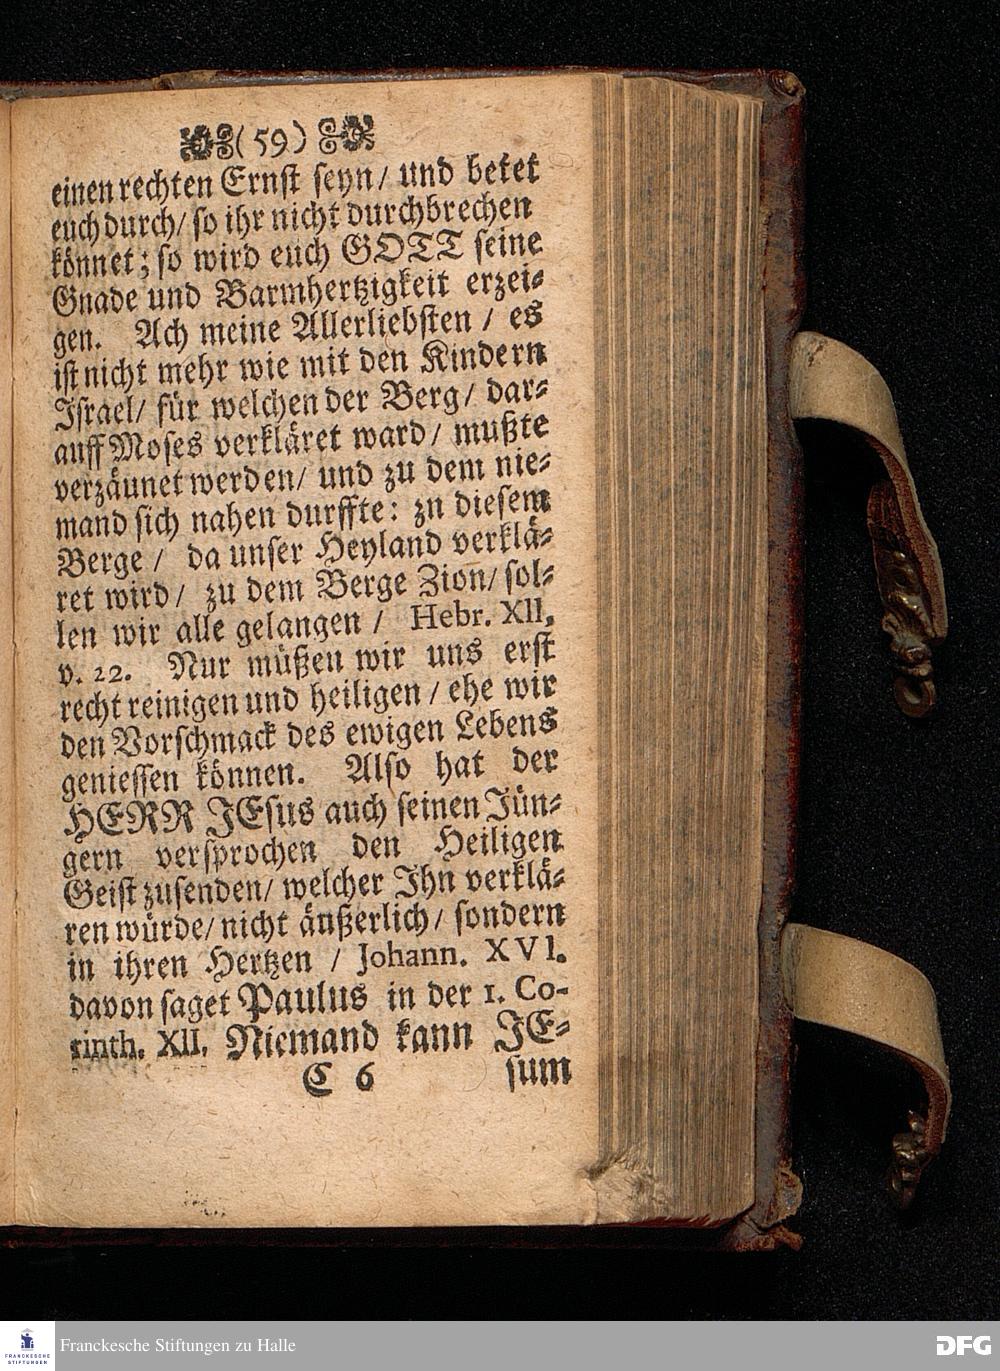 (59)
einen rechten Ernst seyn/ und betet
euch durch/ so ihr nicht durchbrechen
könnet; so wird euch GOTT seine
Gnade und Barmhertzigkeit erzei-
gen. Ach meine Allerliebsten / es
ist nicht mehr wie mit den Kindern
Israel/ für welchen der Berg/ dar-
auff Moses verkläret ward/ mußte
verzäunet werden/ und zu dem nie-
mand sich nahen durffte: zu diesem
Berge / da unser Heyland verklä-
ret wird/ zu dem Berge Zion/ sol-
len wir alle gelangen / Hebr. XII,
v. 22. Nur müßen wir uns erst
recht reinigen und heiligen / ehe wir
den Vorschmack des ewigen Lebens
geniessen können. Also hat der
HERR JEsus auch seinen Jün-
gern versprochen den Heiligen
Geist zusenden/ welcher Ihn verklä-
ren würde/ nicht äußerlich/ sondern
in ihren Hertzen / Johann. XVI.
davon saget Paulus in der 1. Co-
rinth. XII. Niemand kann JE-
C 6 sum
FRANCKESCHE STIFTUNGEN
Franckesche Stiftungen zu Halle
DFG